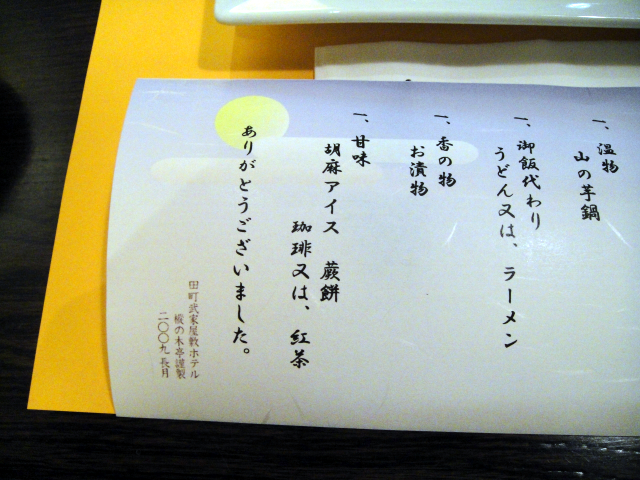 一、温物
山の芋鍋
一、御飯代わり
うどん又は、ラーメン
一、香の物
お漬物
一、甘味
胡麻アイス 蕨餅
珈琲又は、紅茶
ありがとうございました。
田町武家屋敷ホテル
樅の木亭謹製
二〇〇九長月